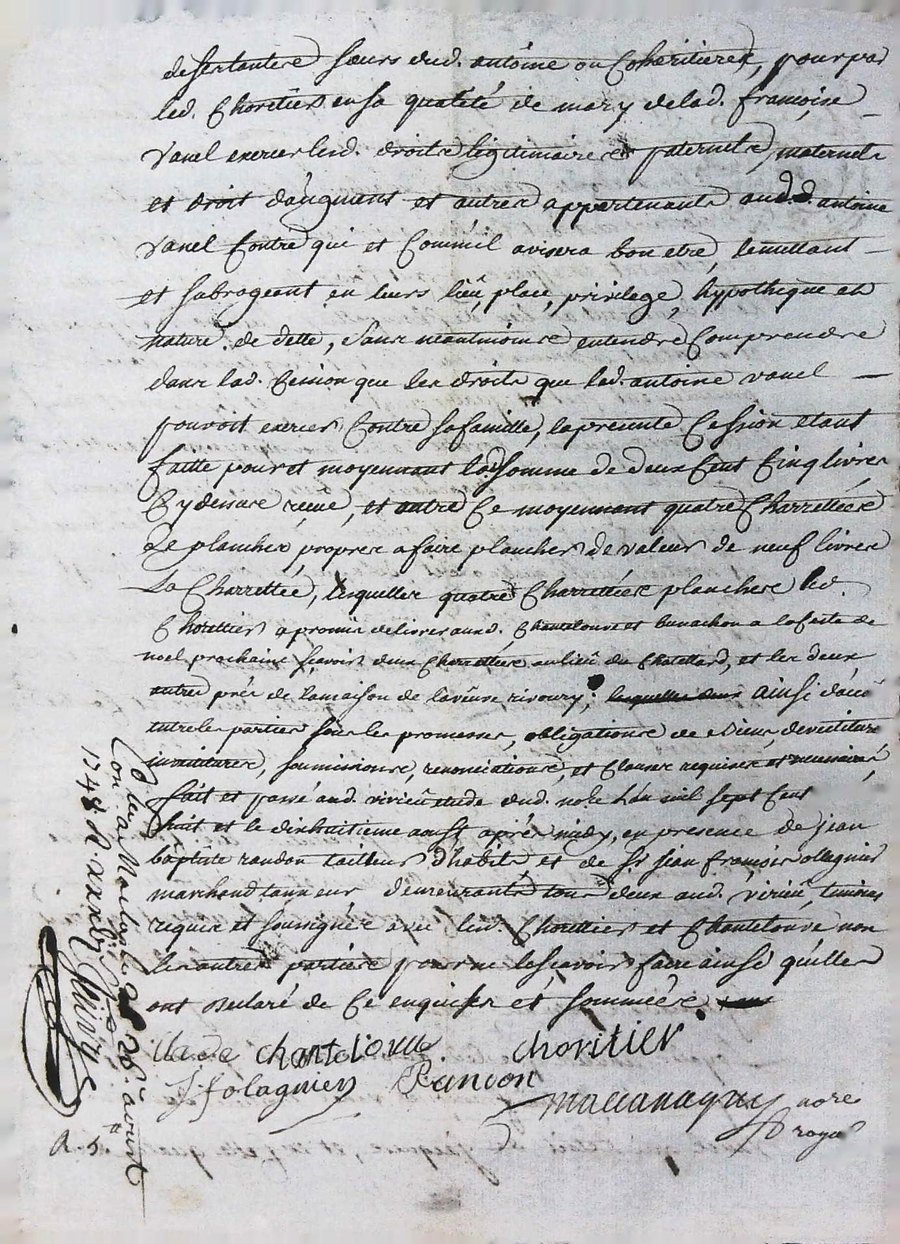 desertantere sœurs dud. antoine ou Coheritieres, pour par
led. Choritier en sa qualité de mary de lad. françoise
vanel exercer lesd. droits legitimaires paternels maternels
et droit d'augment et autres appartenants aud. antoine
vanel Contre qui et Comm'il avisera bon etre, le mettant
et subrogeant en leurs lieu, place, privilege, hypotheque et
nature de dette, sans neantmoins entendre Comprendre
dans lad. Cession que les droits que led. antoine vanel
pouvoit exercer Contre sa famille, la presente Cession etant
faitte pour et moyennant lad. somme de deux Cent Cinq livres
Cy devant reçue, et outre Ce moyennant quatre Charrettées
de planches propres a faire planchers de valeur de neuf livres
La Charrettée, lesquelles quatre Charrettées planches led.
Chorittier a promis delivrer aud. Chantelouve et bonnachon a la feste de
noel prochaine sçavoir deux Charrettées au lieu du Chatellard, et les deux
autres prés de la maison de la veuve risoury; ainsi
entre les parties sous les promesses, obligations de biens, devestitures
investitures, soumissions, renonciations, et Clauses requises et necessaires,
fait et passé aud. virieu etude dud. nore l'an mil sept Cent
huit et le dixhuitieme aoust aprés midy, en presence de jean
baptiste randon tailleur d'habits et de sr jean françois ollagnier
marchend tanneur demeurants tous deux aud. virieu, temoins
requis et soussignés avec lesd. Chorittier et Chantelouve non
les autres parties pour ne le sçavoir faire ainsi qu'elles
ont declaré de Ce enquises et sommées
chantelouve choritier
J f olagnier Rancon
nore
royal
Con
1748
26e
aoust
R. 5